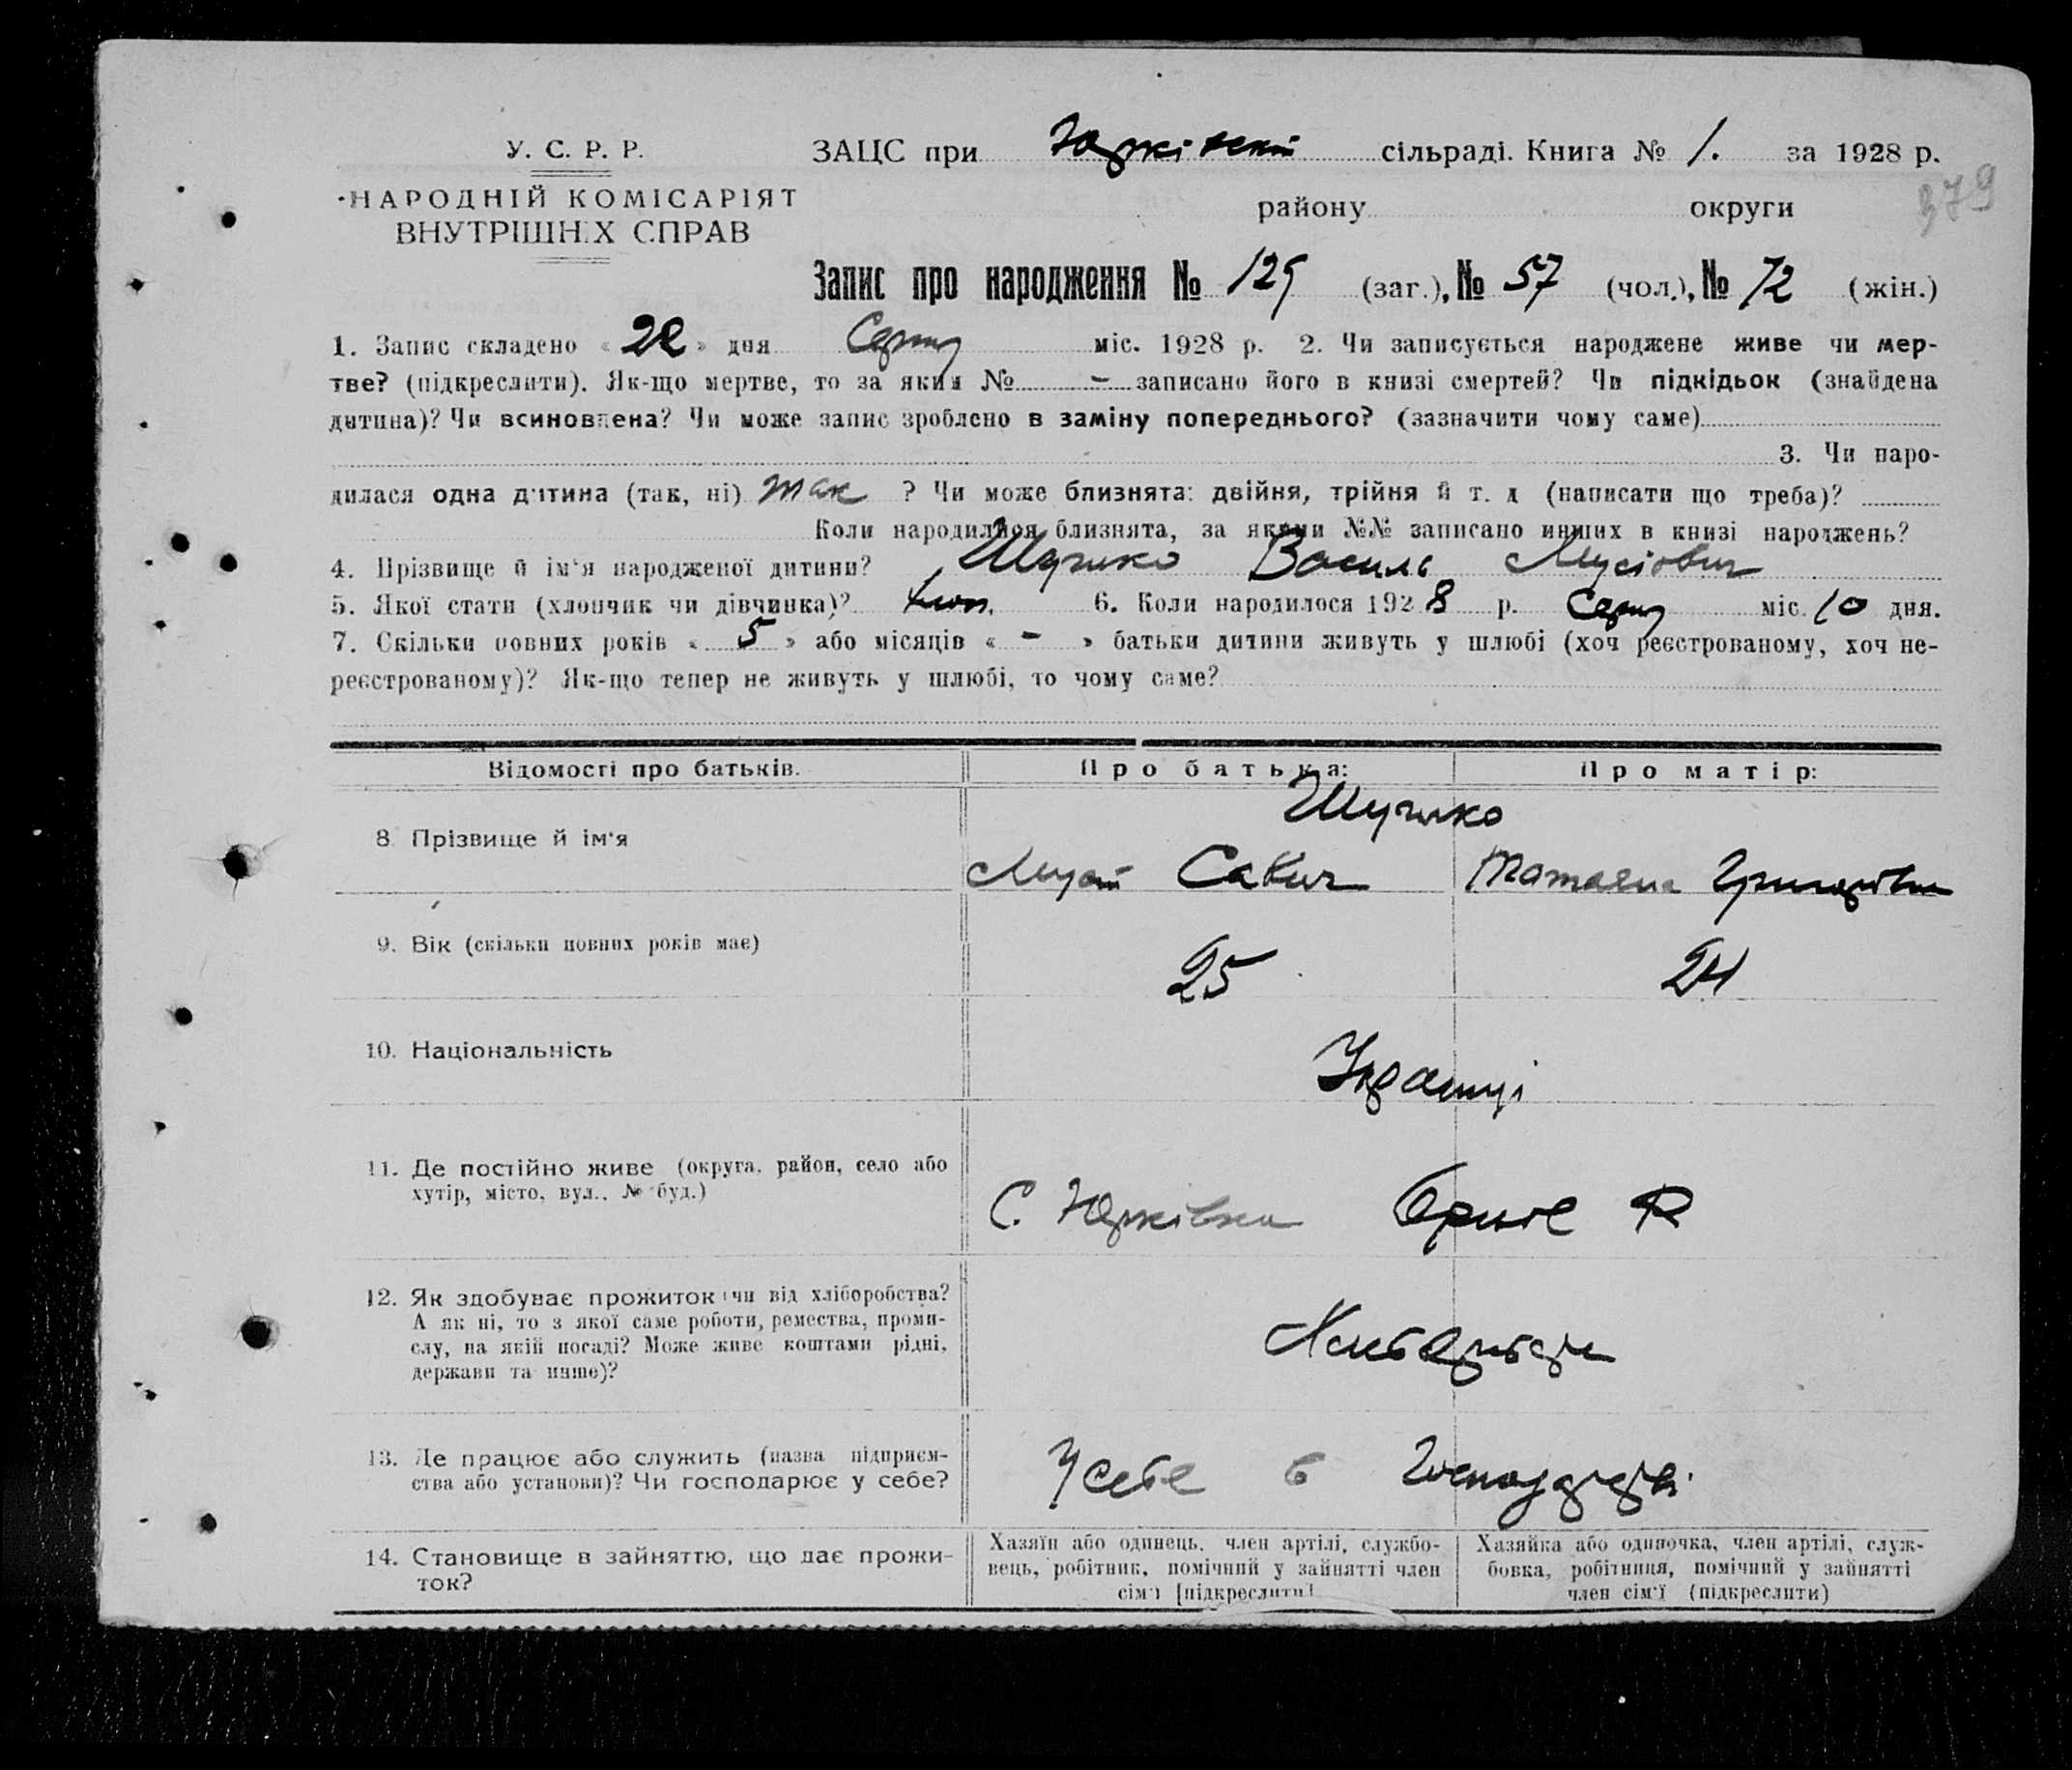 У. С. Р. Р.
НАРОДНІЙ КОМІСАРІЯТ
ВНУТРІШНІХ СПРАВ
ЗАЦС при Юрківській сільраді. Книга № 1. за 1928 р.
району округи
379
Запис про народження № 129 (заг.), № 57 (чол.), № 72 (жін.)
1. Запис складено « » дня Серпня міс. 1928 р. 2. Чи записується народжене живе чи мер-
тве? (підкреслити). Як-що мертве, то за яким № - записано його в книзі смертей? Чи підкідьок (знайдена
дитина)? Чи всиновлена? Чи може запис зроблено в заміну попереднього? (зазначити чому саме)
3. Чи наро-
дилася одна дитина (так, ні) так ? Чи може близнята: двійня, трійня й т. д (написати що треба)?
Коли народилися близнята, за якими №№ записано инших в книзі народжень?
4. Прізвище й ім'я народженої дитини? Василь Мусіович
5. Якої стати (хлопчик чи дівчинка)? хлоп. 6. Коли народилося 1928 р. Серпня міс. 10 дня.
7. Скільки повних років « 5 » або місяців « - » батьки дитини живуть у шлюбі (хоч реєстрованому, хоч не-
реєстрованому)? Як-що тепер не живуть у шлюбі, то чому саме?
Відомості про батьків. Про батька: Про матір:
8. Прізвище й ім'я
Мусій Савич Татяна Григорівна
9. Вік (скільки повних років має) 25 24
10. Національність Українці
11. Де постійно живе (округа, район, село або
хутір, місто, вул., № буд.)
С. Юрківка Р
12. Як здобуває прожиток (чи від хліборобства?
А як ні, то з якої саме роботи, ремества, проми-
слу, на якій посаді? Може живе коштами рідні,
держави та инше)?
13. Де працює або служить (назва підприєм-
ства або установи)? Чи господарює у себе?
У себе в господарстві
14. Становище в зайняттю, що дає прожи-
ток?
Хазяїн або одинець, член артілі, службо-
вець, робітник, помічний у зайнятті член
сім'ї [підкреслити]
Хазяйка або одиночка, член артілі, служ-
бовка, робітниця, помічний у зайнятті
член сім'ї (підкреслити)